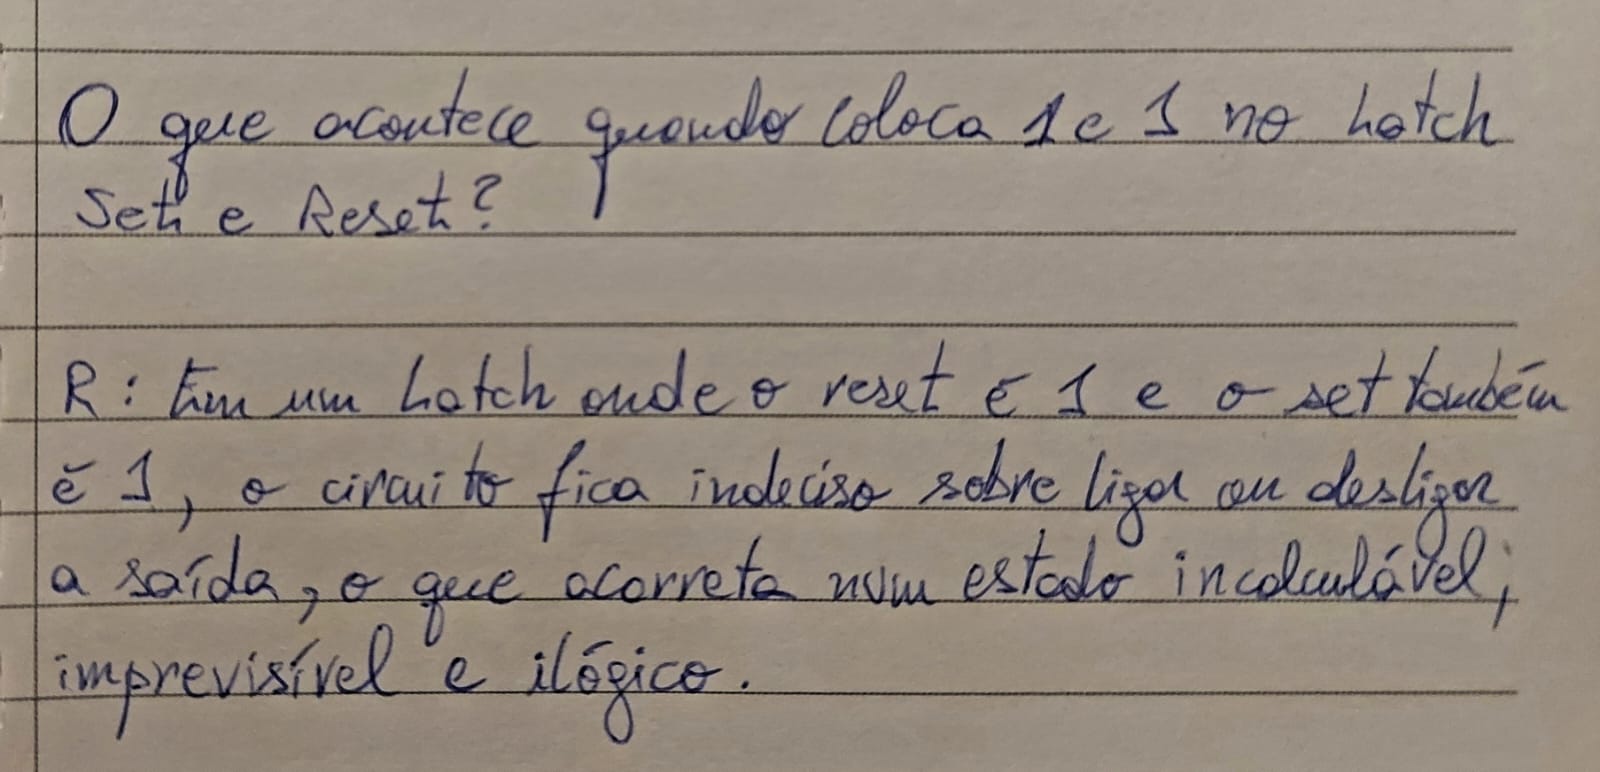 O que acontece quando coloca 1 e 1 no Latch
Set e Reset?
R: Em um Latch onde o reset é 1 e o set também
é 1, o circuito fica indeciso sobre ligar ou desligar
a saída, o que acorreta num estado incalculável,
imprevisível e ilógico.